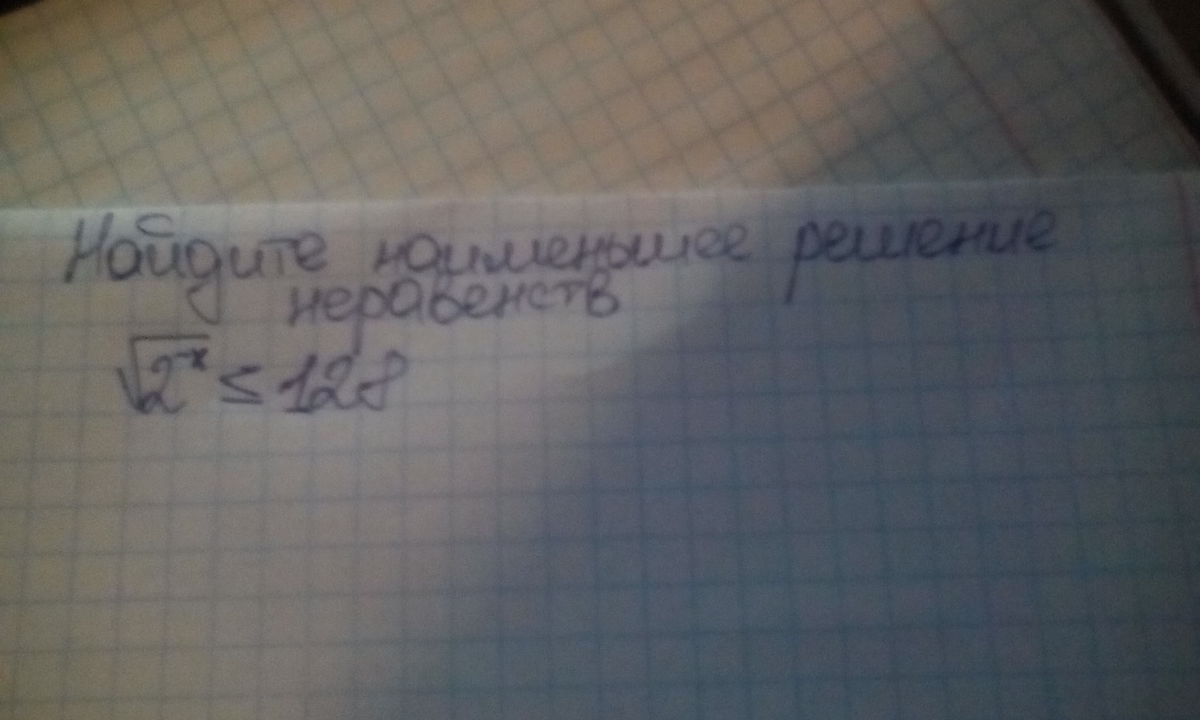 Найдите наименьшее решение
неравенств
√2⁻ˣ ≤ 128